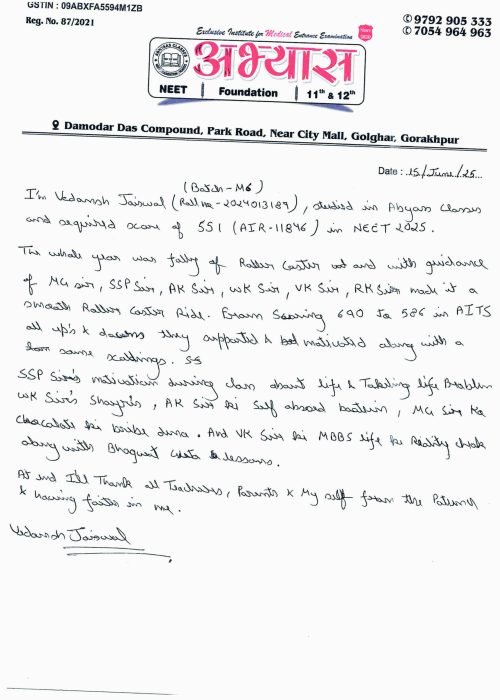 GSTIN : 09ABXFA5594M1ZB
Reg. No. 87/2021
✆ 9792 905 333
✆ 7054 964 963
Exclusive Institute for Medical Entrance Examination
अभ्यास
NEET Foundation 11th & 12th
Damodar Das Compound, Park Road, Near City Mall, Golghar, Gorakhpur
Date : 15/June/25
(Batch - M6)
I'm Vedansh Jaiswal (Roll no - 2024013189), studied in Abyass Classes
and acquired score of 551 (AIR-11846) in NEET 2025.
The whole year was fully of Roller Coster and with guidance
of MG sir, SSP Sir, AK Sir, WK Sir, VK Sir, RK Sir made it a
smooth Roller Coster Ride. Exam Scoring 690 to 586 in AITS
all up's & downs they supported & motivated along with a
some scoldings.
SSP Sir's motivation during class about life & Talking life Problem
WK Sir's Shayris, AK Sir ki Self absord baatein, MG Sir Ka
chocolate ki bribe dena. And VK Sir ki MBBS life ke Reality check
along with Bhagwat Geeta lessons.
At end I'll Thank all Teachers, Parents & My self from the
& having faith in me.
Vedansh Jaiswal